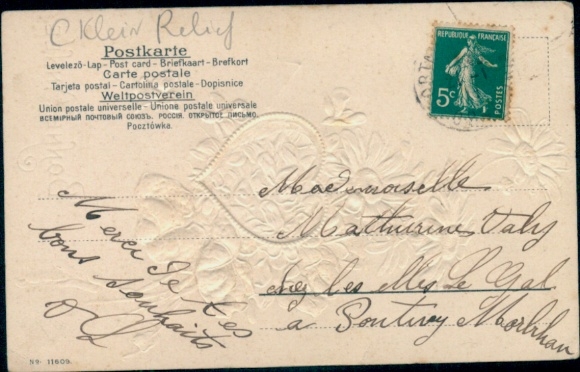 C Klein Relief
Postkarte
Levelező-Lap - Post card - Briefkaart - Brefkort
Carte postale
Tarjeta postal - Cartolina postale - Dopisnice
Weltpostverein
Union postale universelle - Unione postale universale
ВСЕМІРНЫЙ ПОЧТОВЫЙ СОЮЗЪ. РОССІЯ. ОТКРЫТОЕ ПИСЬМО.
Pocztówka.
REPUBLIQUE FRANÇAISE
5c
POSTES
Mademoiselle
Mathurine
chez les Mlles Le Gal
à Pontivy Morbihan
Merci de tes
bons souhaits
No. 11609.